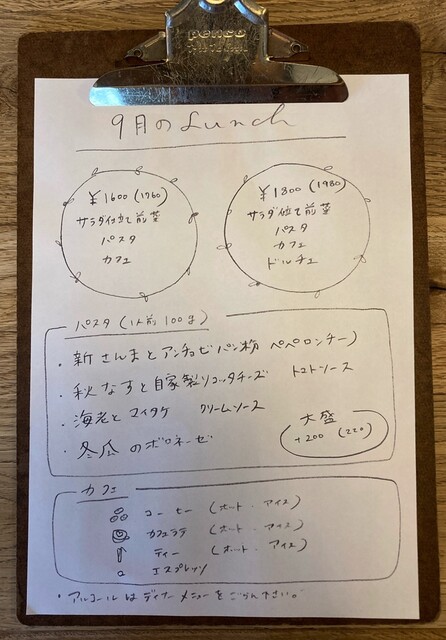 penco
9月のLunch
¥1600(1760)
サラダ仕立て前菜
パスタ
カフェ
¥1800(1980)
サラダ仕立て前菜
パスタ
カフェ
ドルチェ
パスタ(1人前100g)
・新さんまとアンチョビパン粉 ペペロンチーノ
・秋なすと自家製リコッタチーズ トマトソース
・海老とマイタケ クリームソース
・冬瓜のボロネーゼ
大盛
+200 (220)
カフェ
コーヒー (ホット・アイス)
カフェラテ (ホット・アイス)
ティー (ホット・アイス)
エスプレッソ
・アルコールはディナーメニューをごらん下さい。